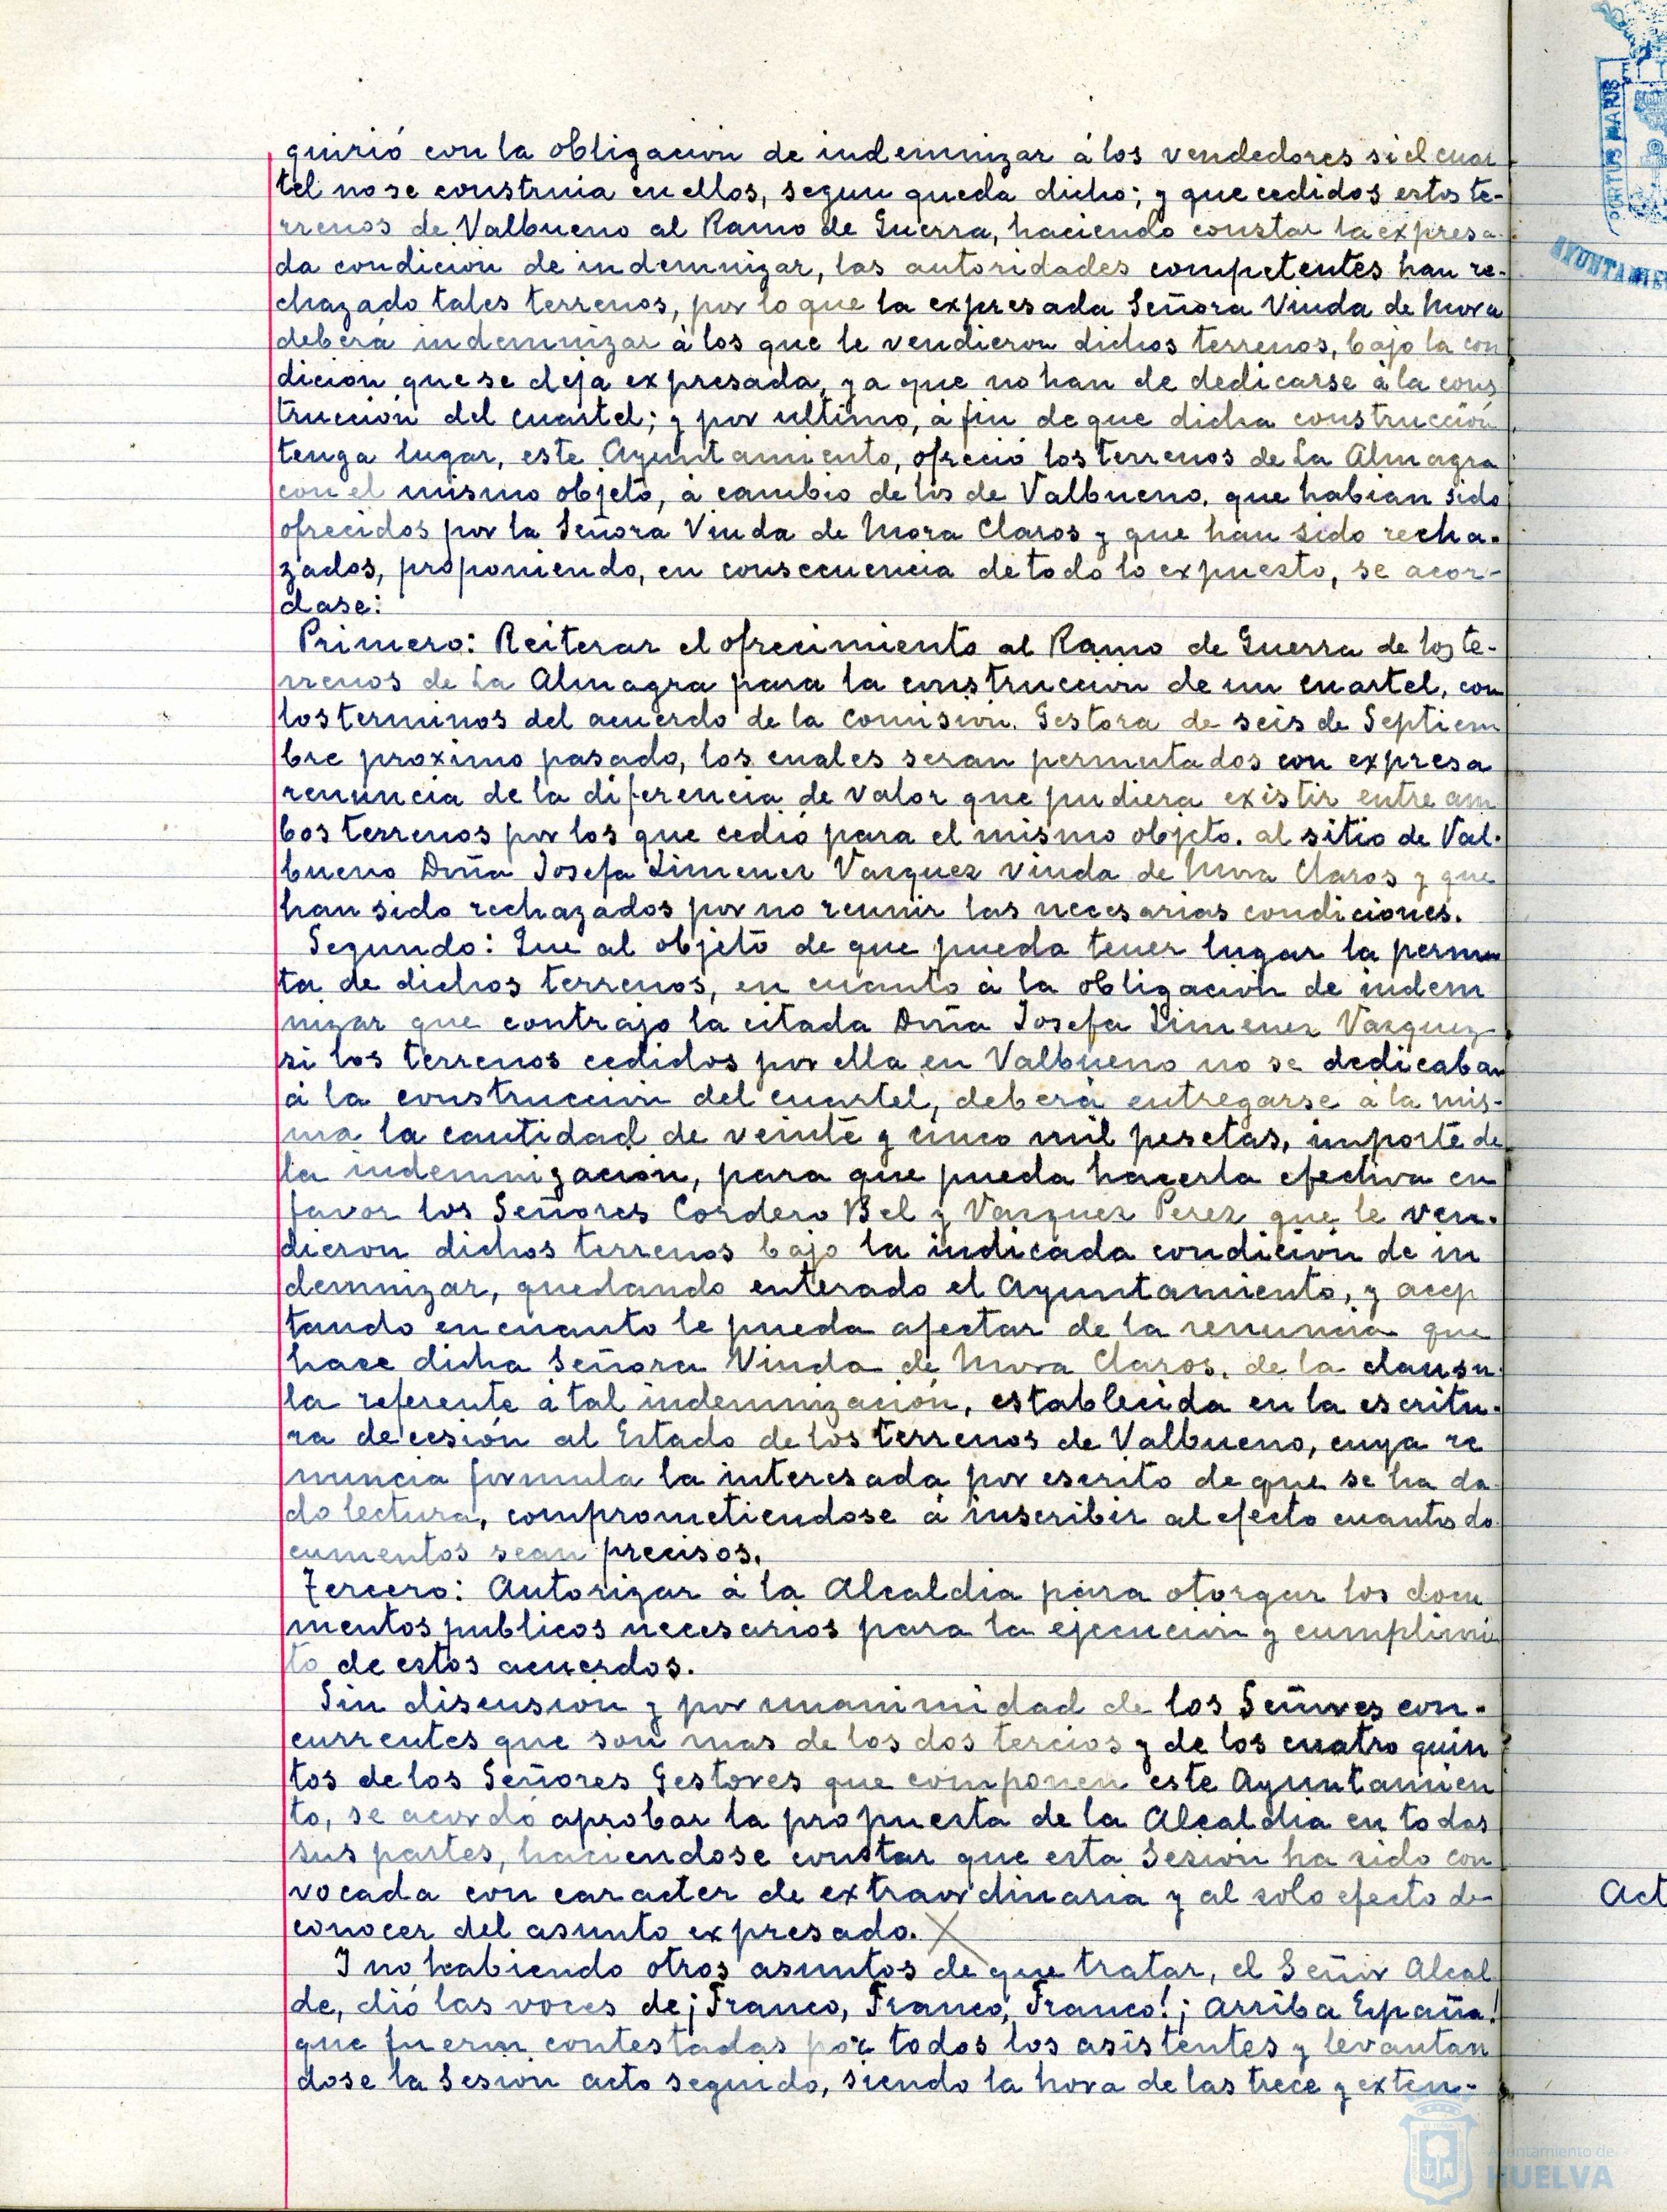 quirió con la obligacion de indemnizar á los vendedores si el cuar
tel no se construia en ellos, segun queda dicho; y que cedidos estos te-
rrenos de Valbueno al Ramo de Guerra, haciendo constar la expresa-
da condicion de indemnizar, las autoridades competentes han re-
chazado tales terrenos, por lo que la expresada Señora Viuda de Mora
deberá indemnizar à los que le vendieron dichos terrenos, bajo la con
dicion que se deja expresada, ya que no han de dedicarse à la cons
trucción del cuartel; y por ultimo, à fin de que dicha construcción
tenga lugar, este Ayuntamiento, ofreció los terrenos de La Almagra
con el mismo objeto, à cambio de los de Valbueno, que habian sido
ofrecidos por la Señora Viuda de Mora Claros y que han sido recha-
zados, proponiendo, en consecuencia de todo lo expuesto, se acor-
dase:
Primero: Reiterar el ofrecimiento al Ramo de Guerra de los te-
rrenos de La Almagra para la construccion de un cuartel, con
los terminos del acuerdo de la Comision Gestora de seis de Septiem
bre proximo pasado, los cuales seran permutados con expresa
renuncia de la diferencia de valor que pudiera existir entre am
bos terrenos por los que cedió para el mismo objeto, al sitio de Val-
bueno Dña Josefa Jimenez Vazquez viuda de Mora Claros y que
han sido rechazados por no reunir las necesarias condiciones.
Segundo: Que al objeto de que pueda tener lugar la permu
ta de dichos terrenos, en cuanto à la obligación de indem
nizar que contrajo la citada Dña Josefa Jimenez Vazquez
si los terrenos cedidos por ella en Valbueno no se dedicaban
à la construccion del cuartel, deberá entregarse à la mis-
ma la cantidad de veinte y cinco mil pesetas, importe de
la indemnizacion, para que pueda hacerla efectiva en
favor los Señores Cordero Bel y Vazquez Perez que le ven-
dieron dichos terrenos bajo la indicada condición de in
demnizar, quedando enterado el Ayuntamiento, y acep
tando en cuanto le pueda afectar de la renuncia que
hace dicha Señora Viuda de Mora Claros, de la clausu-
la referente à tal indemnización, establecida en la escritu-
ra de cesión al Estado de los terrenos de Valbueno, cuya re
nuncia formula la interesada por escrito de que se ha da
do lectura, comprometiendose à inscribir al efecto cuantos do
cumentos sean precisos.
Tercero: Autorizar à la Alcaldia para otorgar los docu
mentos publicos necesarios para la ejecucion y cumplimien
to de estos acuerdos.
Sin discusion y por unanimidad de los Señores con-
currentes que son mas de los dos tercios y de los cuatro quin
tos de los Señores Gestores que componen este Ayuntamien
to, se acordó aprobar la propuesta de la Alcaldia en todas
sus partes, haciendose constar que esta Sesión ha sido con
vocada con caracter de extraordinaria y al solo efecto de
conocer del asunto expresado.
Y no habiendo otros asuntos de que tratar, el Señor Alcal
de, dió las voces de ¡Franco, Franco, Franco! ¡Arriba España!
que fueron contestadas por todos los asistentes y levantan
dose la Sesion acto seguido, siendo la hora de las trece y exten-
PORTUS MARIS
AYUNTAMIE
Act
Ayuntamiento de
HUELVA